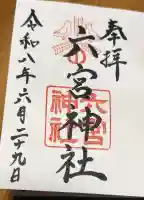 奉拝
六宮神社
六宮
神社
令和八年六月二十九日